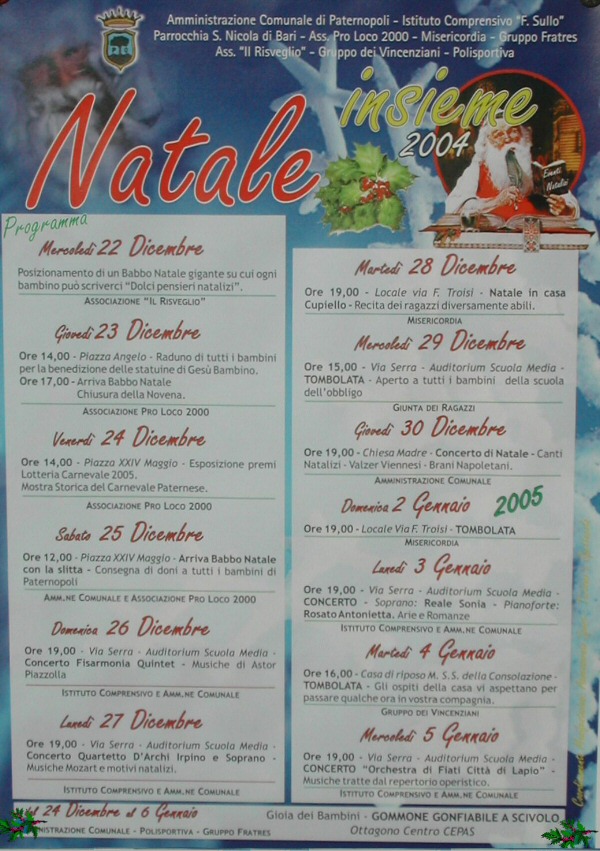 Amministrazione Comunale di Paternopoli - Istituto Comprensivo "F. Sullo"
Parrocchia S. Nicola di Bari - Ass. Pro Loco 2000 - Misericordia - Gruppo Fratres
Ass. "Il Risveglio" - Gruppo dei Vincenziani - Polisportiva
Natale insieme
2004
Eventi
Natalizi
Programma
Mercoledì 22 Dicembre
Posizionamento di un Babbo Natale gigante su cui ogni
bambino può scriverci "Dolci pensieri natalizi".
Associazione "Il Risveglio"
Giovedì 23 Dicembre
Ore 14,00 - Piazza Angelo - Raduno di tutti i bambini
per la benedizione delle statuine di Gesù Bambino.
Ore 17,00 - Arriva Babbo Natale
Chiusura della Novena.
Associazione Pro Loco 2000
Venerdì 24 Dicembre
Ore 14,00 - Piazza XXIV Maggio - Esposizione premi
Lotteria Carnevale 2005.
Mostra Storica del Carnevale Paternese.
Associazione Pro Loco 2000
Sabato 25 Dicembre
Ore 12,00 - Piazza XXIV Maggio - Arriva Babbo Natale
con la slitta - Consegna di doni a tutti i bambini di
Paternopoli
Amm.ne Comunale e Associazione Pro Loco 2000
Domenica 26 Dicembre
Ore 19,00 - Via Serra - Auditorium Scuola Media -
Concerto Fisarmonia Quintet - Musiche di Astor
Piazzolla
Istituto Comprensivo e Amm.ne Comunale
Lunedì 27 Dicembre
Ore 19,00 - Via Serra - Auditorium Scuola Media -
Concerto Quartetto D'Archi Irpino e Soprano -
Musiche Mozart e motivi natalizi.
Istituto Comprensivo e Amm.ne Comunale
Martedì 28 Dicembre
Ore 19,00 - Locale via F. Troisi - Natale in casa
Cupiello - Recita dei ragazzi diversamente abili.
Misericordia
Mercoledì 29 Dicembre
Ore 15,00 - Via Serra - Auditorium Scuola Media -
TOMBOLATA - Aperto a tutti i bambini della scuola
dell'obbligo
Giunta dei Ragazzi
Giovedì 30 Dicembre
Ore 19,00 - Chiesa Madre - Concerto di Natale - Canti
Natalizi - Valzer Viennesi - Brani Napoletani.
Amministrazione Comunale
Domenica 2 Gennaio 2005
Ore 19,00 - Locale Via F. Troisi - TOMBOLATA
Misericordia
Lunedì 3 Gennaio
Ore 19,00 - Via Serra - Auditorium Scuola Media -
CONCERTO - Soprano: Reale Sonia - Pianoforte:
Rosato Antonietta. Arie e Romanze
Istituto Comprensivo e Amm.ne Comunale
Martedì 4 Gennaio
Ore 16,00 - Casa di riposo M. S.S. della Consolazione -
TOMBOLATA - Gli ospiti della casa vi aspettano per
passare qualche ora in vostra compagnia.
Gruppo dei Vincenziani
Mercoledì 5 Gennaio
Ore 19,00 - Via Serra - Auditorium Scuola Media -
CONCERTO "Orchestra di Fiati Città di Lapio" -
Musiche tratte dal repertorio operistico.
Istituto Comprensivo e Amm.ne Comunale
24 Dicembre al 6 Gennaio
Comunale - Polisportiva - Gruppo Fratres
Gioia dei Bambini - GOMMONE GONFIABILE A SCIVOLO
Ottagono Centro CEPAS